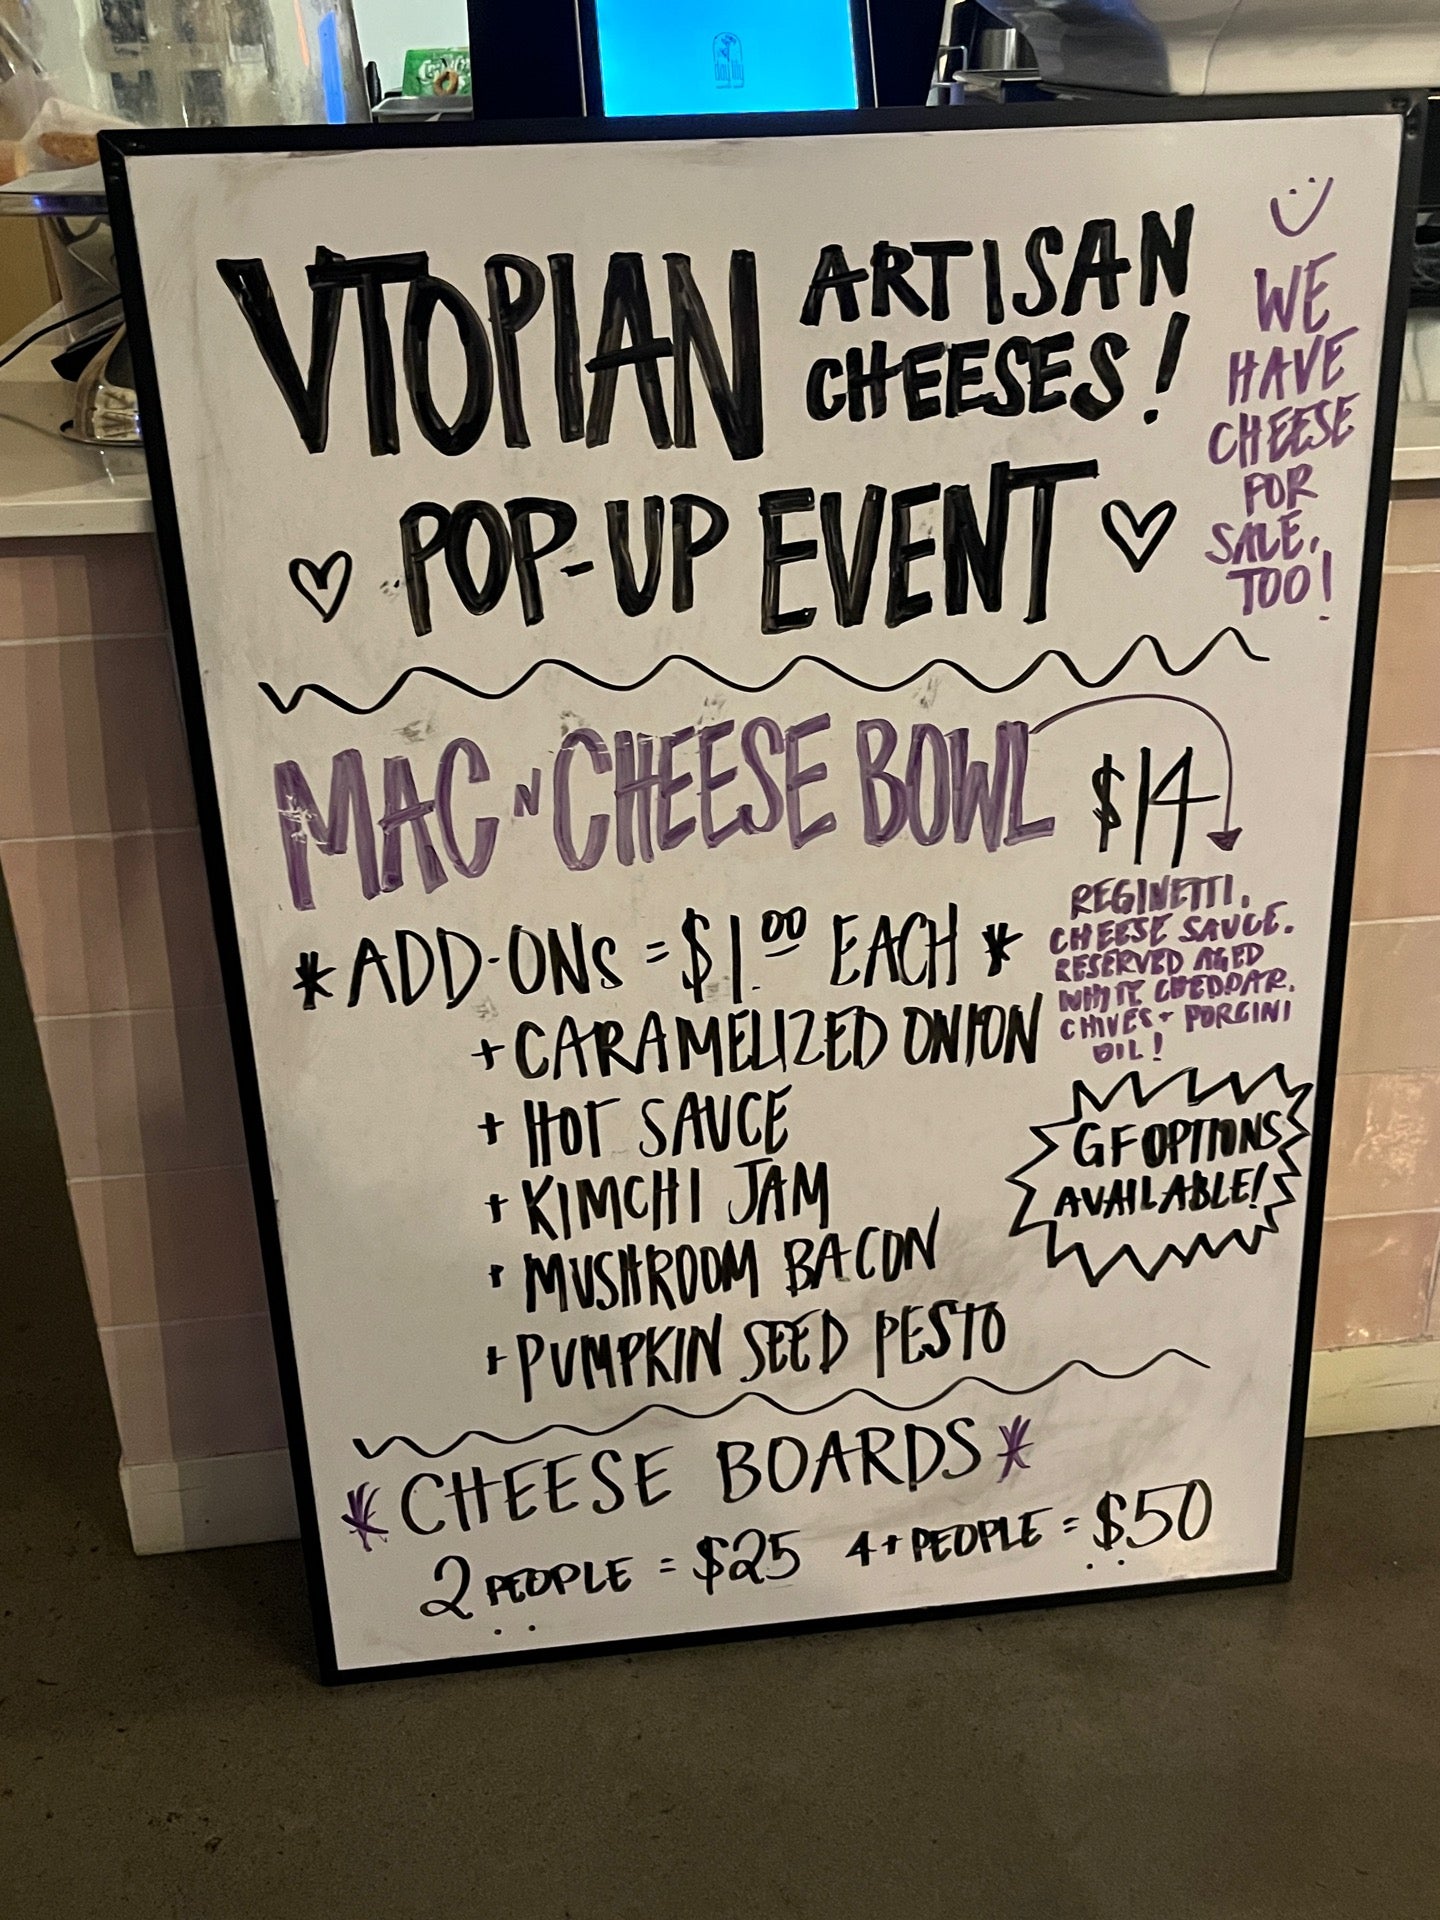 VTOPIAN ARTISAN
CHEESES!
POP-UP EVENT
WE
HAVE
CHEESE
FOR
SALE,
TOO!
MAC N CHEESE BOWL $14
REGINETTI,
CHEESE SAUCE.
RESERVED AGED
WHITE CHEDDAR.
CHIVES + PORCINI
OIL!
*ADD-ONS = $1.00 EACH *
+ CARAMELIZED ONION
+ HOT SAUCE
+ KIMCHI JAM
+ MUSHROOM BACON
+ PUMPKIN SEED PESTO
GF OPTIONS
AVAILABLE!
*CHEESE BOARDS*
2 PEOPLE = $25 4+ PEOPLE = $50